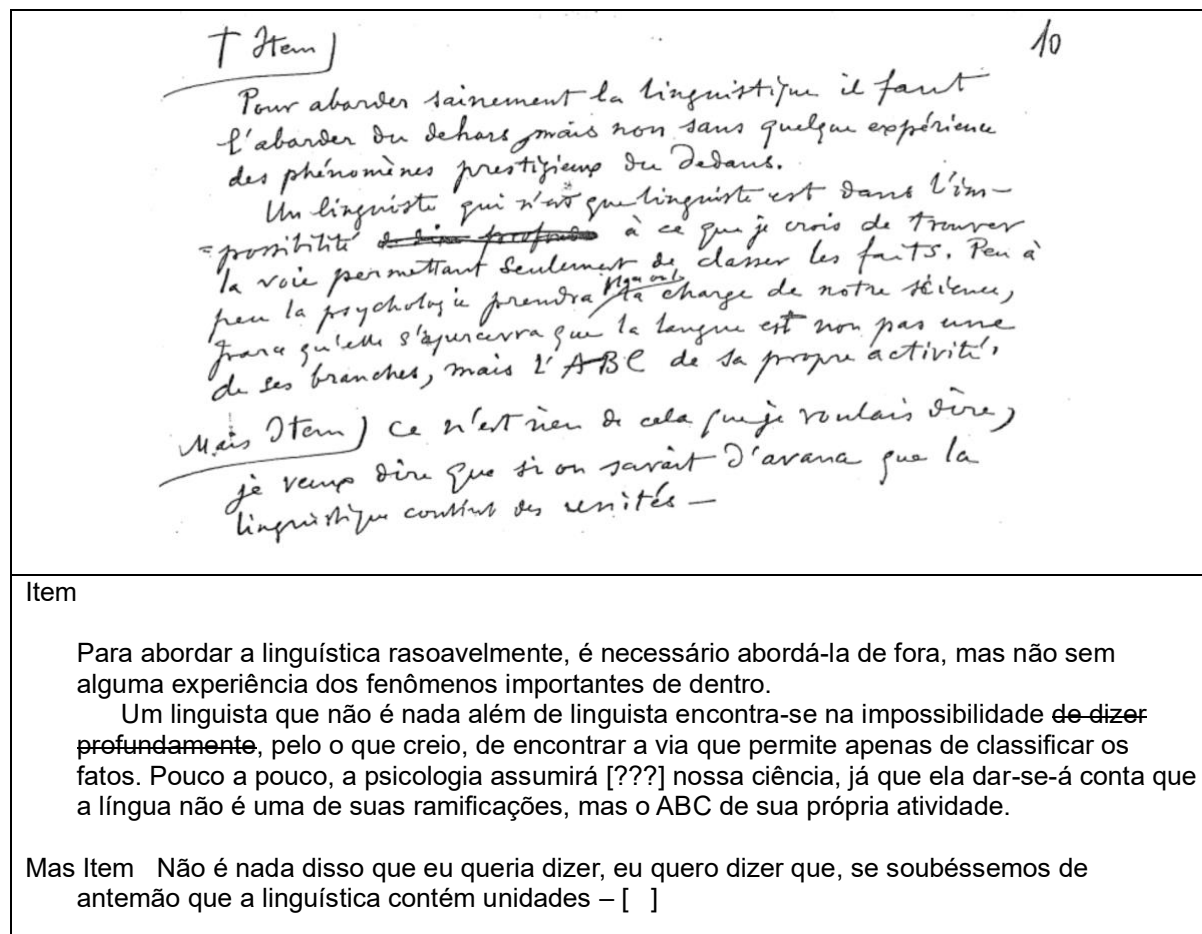 † Item) 10
Pour aborder sainement la linguistique il faut
l'aborder du dehors, mais non sans quelque expérience
des phénomènes prestigieux du dedans.
Un linguiste qui n'est que linguiste est dans l'im-
=possibilité de dire à ce que je crois de trouver
la voie permettant seulement de classer les faits. Peu à
peu la psychologie prendra la charge de notre science,
parce qu'elle s'apercevra que la langue est non pas une
de ses branches, mais l'ABC de sa propre activité.
Mais Item) Ce n'est rien de cela que je voulais dire,
je veux dire que si on savait d'avance que la
linguistique contient des unités —
Item
Para abordar a linguística rasoavelmente, é necessário abordá-la de fora, mas não sem
alguma experiência dos fenômenos importantes de dentro.
Um linguista que não é nada além de linguista encontra-se na impossibilidade de dizer
profundamente, pelo o que creio, de encontrar a via que permite apenas de classificar os
fatos. Pouco a pouco, a psicologia assumirá [???] nossa ciência, já que ela dar-se-á conta que
a língua não é uma de suas ramificações, mas o ABC de sua própria atividade.
Mas Item Não é nada disso que eu queria dizer, eu quero dizer que, se soubéssemos de
antemão que a linguística contém unidades – [ ]